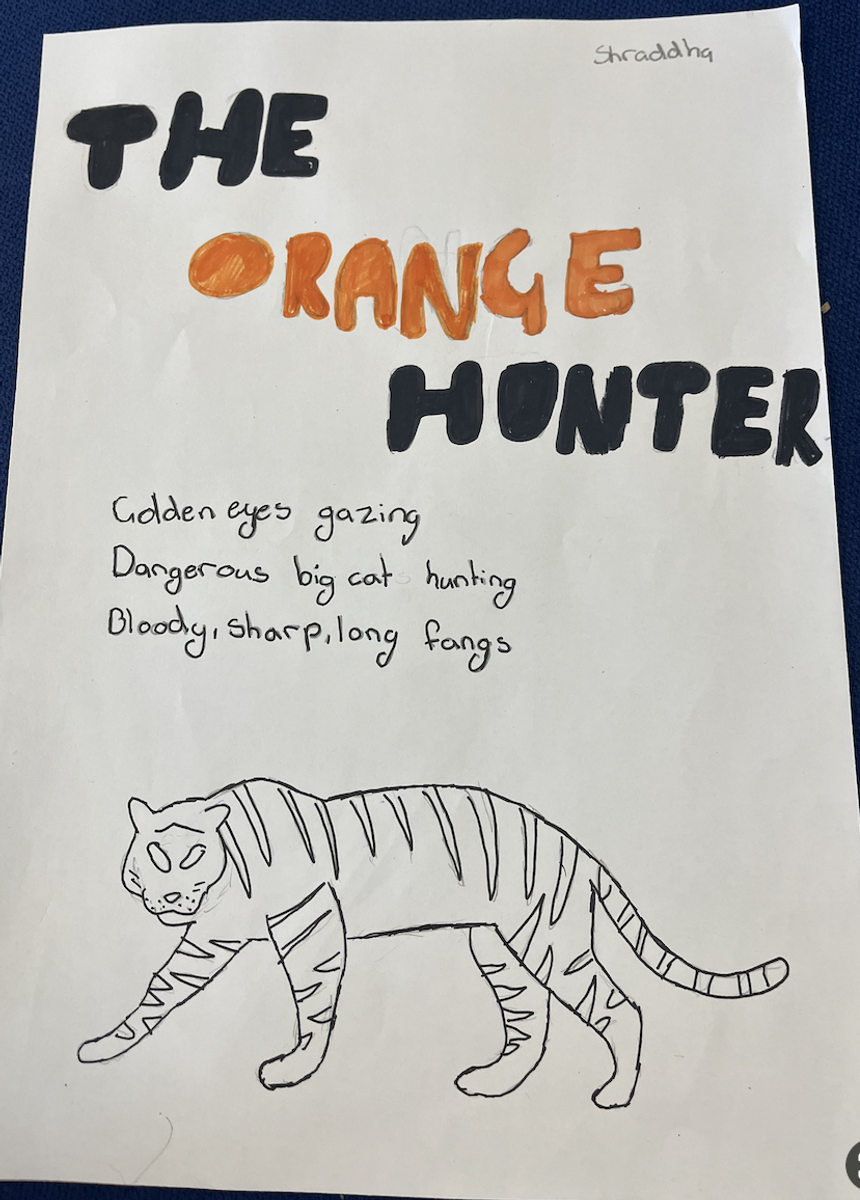 Shraddha
THE
ORANGE
HUNTER
Golden eyes gazing
Dangerous big cat hunting
Bloody, sharp, long fangs